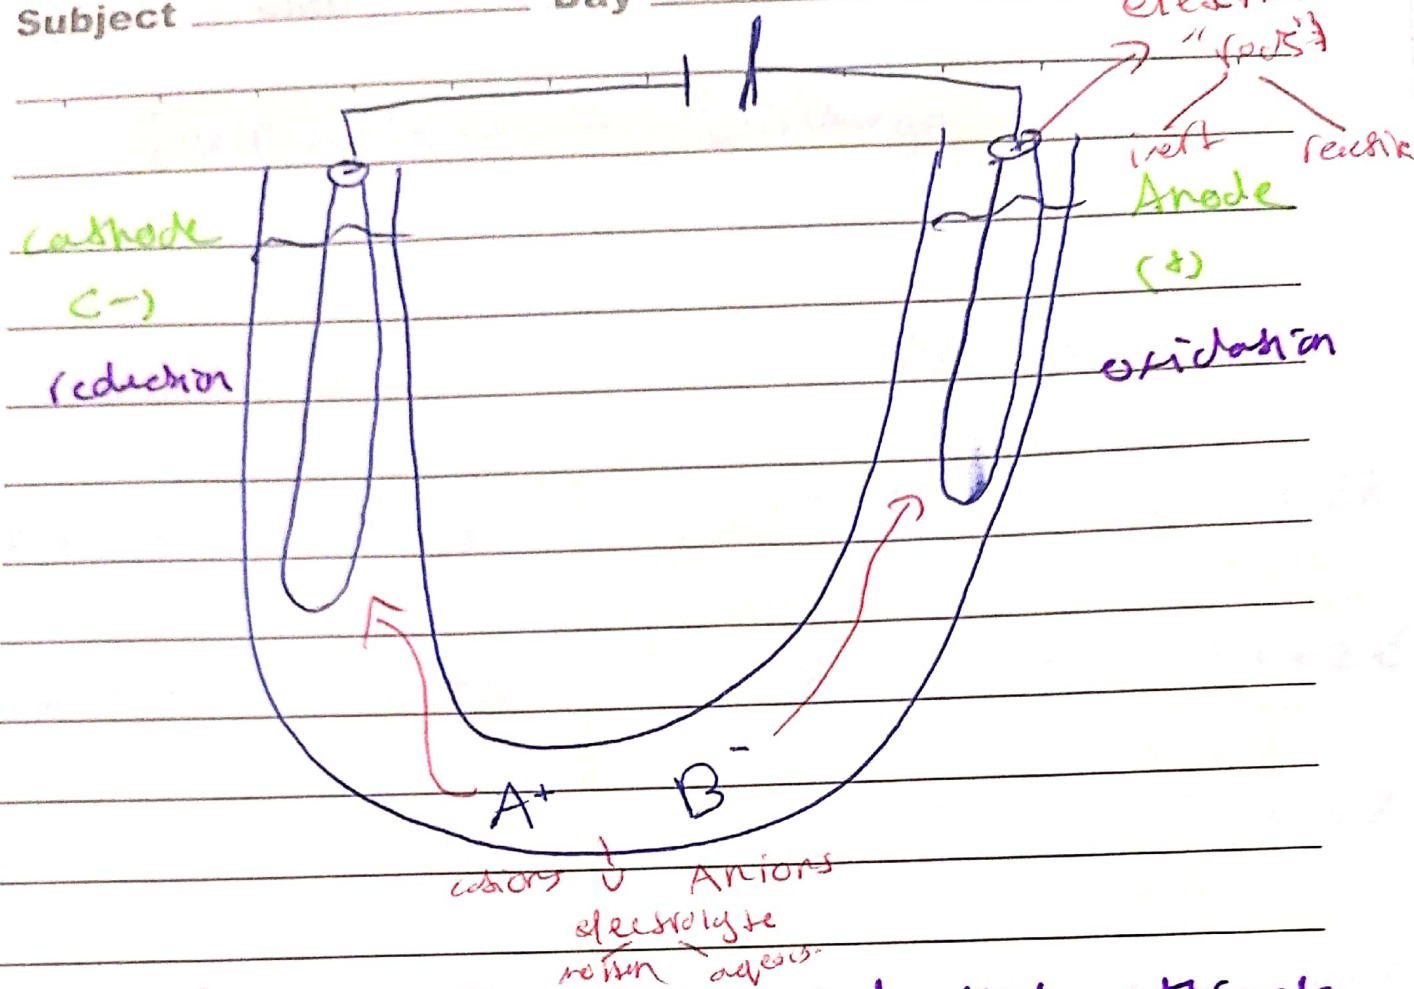 Subject Day
"rods"
inert
Cathode Anode
(-) (+)
reduction oxidation
A+ B-
cations Anions
electrolyte
molten aqeous